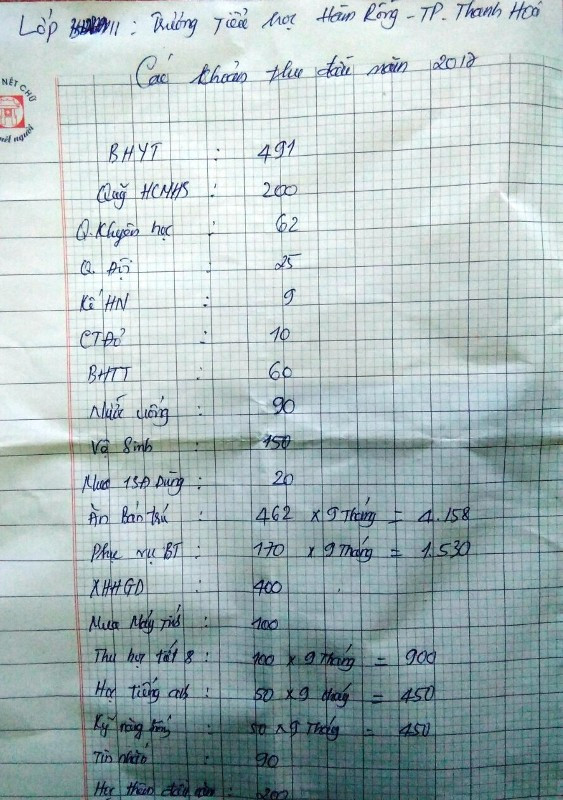 Lớp : Trường Tiểu học Hàm Rồng - TP. Thanh Hoá
Các khoản thu đầu năm 2017
NÉT CHỮ
nết người
BHYT : 491
Quỹ HCMHS : 200
Q. Khuyến học : 62
Q. Đội : 25
Kế HN : 9
CTĐỏ : 10
BHTT : 60
Nước uống : 90
Vệ Sinh : 150
Mua Dùng : 20
Ăn Bán trú : 462 x 9 Tháng = 4.158
Phục vụ BT : 170 x 9 Tháng = 1.530
XHHGD : 400
Mua Máy Tính : 100
Thu học tiết 8 : 100 x 9 Tháng = 900
Học tiếng anh : 50 x 9 tháng = 450
Kỹ năng sống : 50 x 9 Tháng = 450
Tin nhắn : 90
Học thêm : 200